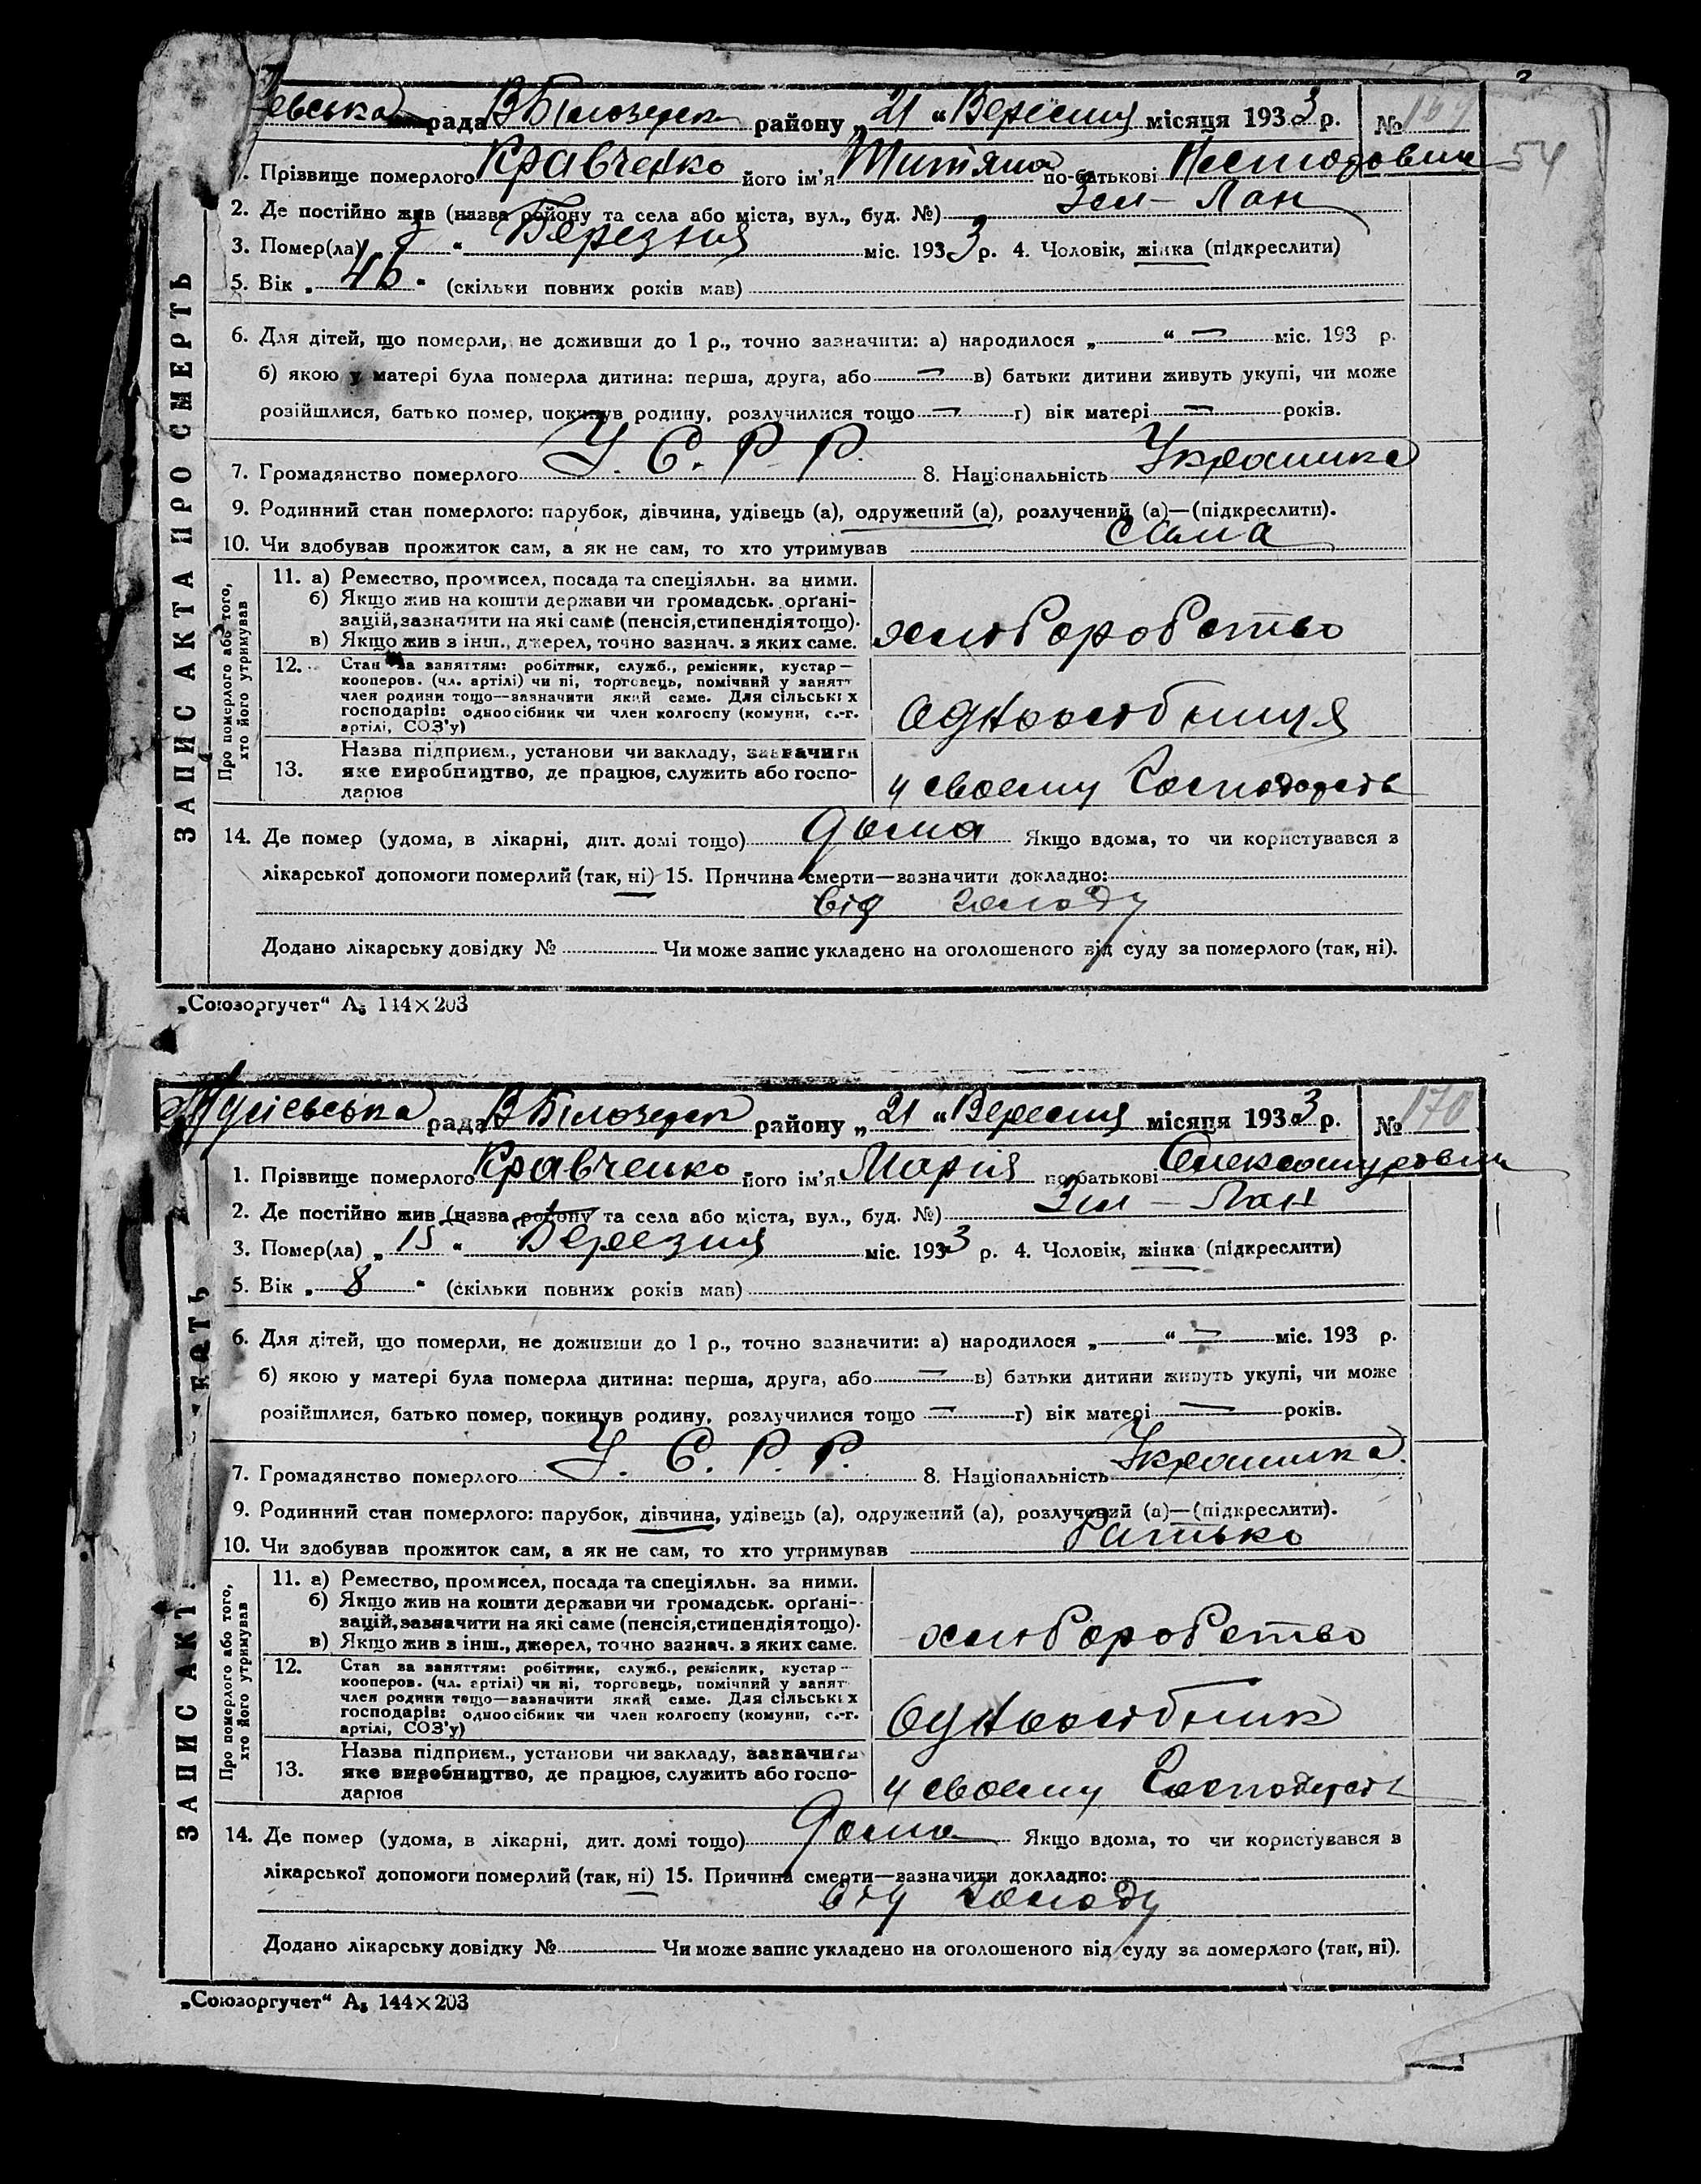 евська рада В Білозерск району „21“ Вересня місяця 1933 р. № 169
54
1. Прізвище померлого Кравченко його ім'я Титяна по-батькові
2. Де постійно жив (назва району та села або міста, вул., буд. №) Зел-Лан
3. Помер(ла) “ Березня міс. 1933 р. 4. Чоловік, жінка (підкреслити)
5. Вік „ “ (скільки повних років мав)
6. Для дітей, що померли, не доживши до 1 р., точно зазначити: а) народилося „ “ — міс. 193 р.
б) якою у матері була померла дитина: перша, друга, або — в) батьки дитини живуть укупі, чи може
розійшлися, батько помер, покинув родину, розлучилися тощо — г) вік матері — років.
7. Громадянство померлого У. С. Р. Р. 8. Національність Українка
9. Родинний стан померлого: парубок, дівчина, удівець (а), одружений (а), розлучений (а)—(підкреслити).
10. Чи здобував прожиток сам, а як не сам, то хто утримував сама
ЗАПИС АКТА ПРО СМЕРТЬ
Про померлого або того, хто його утримував
11. а) Ремество, промисел, посада та спеціяльн. за ними.
б) Якщо жив на кошти держави чи громадськ. органі-
зацій, зазначити на які саме (пенсія, стипендія тощо).
в) Якщо жив з інш., джерел, точно зазнач. з яких саме.
хлюборобство
12. Стан за заняттям: робітник, служб., ремісник, кустар—
кооперов. (чл. артілі) чи ні, торговець, помічний у занят
член родини тощо—зазначити який саме. Для сільських
господарів: одноосібник чи член колгоспу (комуни, с.-г.
артілі, СОЗ'у)
одноосібниця
13. Назва підприєм., установи чи закладу, зазначити
яке виробництво, де працює, служить або госпо-
дарює
у своєму
14. Де помер (удома, в лікарні, дит. домі тощо) дома Якщо вдома, то чи користувався з
лікарської допомоги померлий (так, ні) 15. Причина смерти—зазначити докладно:
від голоду
Додано лікарську довідку № Чи може запис укладено на оголошеного від суду за померлого (так, ні).
„Союзоргучет“ А₅ 144×203
рада В Білозерск району „21“ Вересня місяця 1933 р. № 170
1. Прізвище померлого Кравченко його ім'я Марія по-батькові
2. Де постійно жив (назва району та села або міста, вул., буд. №) Зел-Лан
3. Помер(ла) „15“ Березня міс. 1933 р. 4. Чоловік, жінка (підкреслити)
5. Вік „8“ (скільки повних років мав)
6. Для дітей, що померли, не доживши до 1 р., точно зазначити: а) народилося „ “ — міс. 193 р.
б) якою у матері була померла дитина: перша, друга, або — в) батьки дитини живуть укупі, чи може
розійшлися, батько помер, покинув родину, розлучилися тощо — г) вік матері — років.
7. Громадянство померлого У. С. Р. Р. 8. Національність Українка
9. Родинний стан померлого: парубок, дівчина, удівець (а), одружений (а), розлучений (а)—(підкреслити).
10. Чи здобував прожиток сам, а як не сам, то хто утримував батько
ЗАПИС АКТ
Про померлого або того, хто його утримував
11. а) Ремество, промисел, посада та спеціяльн. за ними.
б) Якщо жив на кошти держави чи громадськ. органі-
зацій, зазначити на які саме (пенсія, стипендія тощо).
в) Якщо жив з інш., джерел, точно зазнач. з яких саме.
хлюборобство
12. Стан за заняттям: робітник, служб., ремісник, кустар—
кооперов. (чл. артілі) чи ні, торговець, помічний у занят
член родини тощо—зазначити який саме. Для сільських
господарів: одноосібник чи член колгоспу (комуни, с.-г.
артілі, СОЗ'у)
одноосібник
13. Назва підприєм., установи чи закладу, зазначити
яке виробництво, де працює, служить або госпо-
дарює
у своєму
14. Де помер (удома, в лікарні, дит. домі тощо) дома Якщо вдома, то чи користувався з
лікарської допомоги померлий (так, ні) 15. Причина смерти—зазначити докладно:
від голоду
Додано лікарську довідку № Чи може запис укладено на оголошеного від суду за померлого (так, ні).
„Союзоргучет“ А₅ 144×203